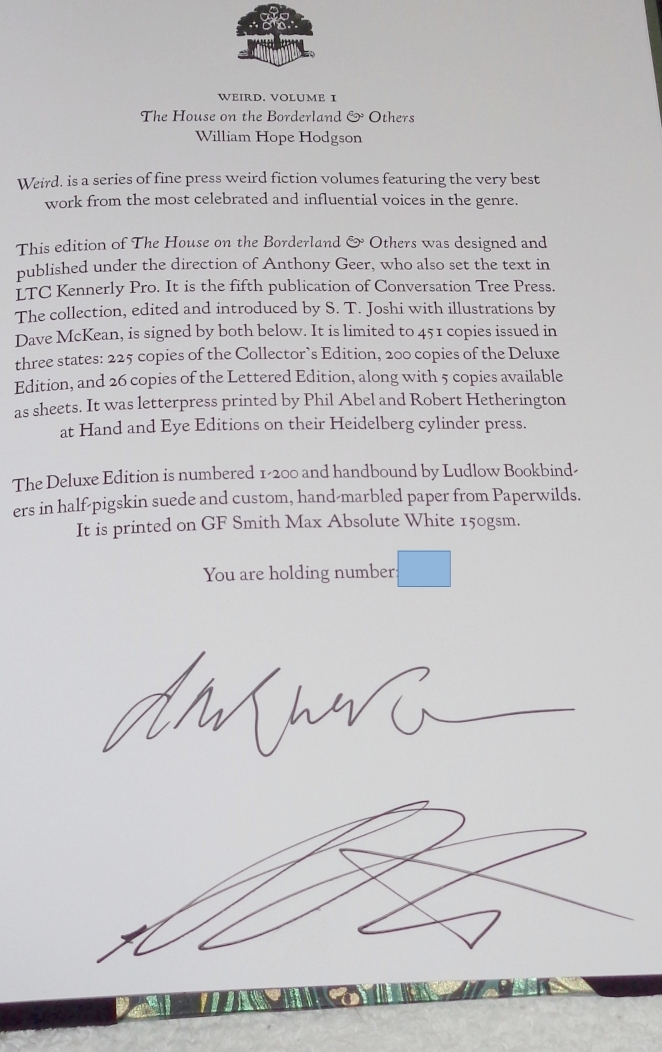 WEIRD. VOLUME I
The House on the Borderland & Others
William Hope Hodgson
Weird. is a series of fine press weird fiction volumes featuring the very best
work from the most celebrated and influential voices in the genre.
This edition of The House on the Borderland & Others was designed and
published under the direction of Anthony Geer, who also set the text in
LTC Kennerly Pro. It is the fifth publication of Conversation Tree Press.
The collection, edited and introduced by S. T. Joshi with illustrations by
Dave McKean, is signed by both below. It is limited to 451 copies issued in
three states: 225 copies of the Collector's Edition, 200 copies of the Deluxe
Edition, and 26 copies of the Lettered Edition, along with 5 copies available
as sheets. It was letterpress printed by Phil Abel and Robert Hetherington
at Hand and Eye Editions on their Heidelberg cylinder press.
The Deluxe Edition is numbered 1-200 and handbound by Ludlow Bookbind-
ers in half-pigskin suede and custom, hand-marbled paper from Paperwilds.
It is printed on GF Smith Max Absolute White 150gsm.
You are holding number: